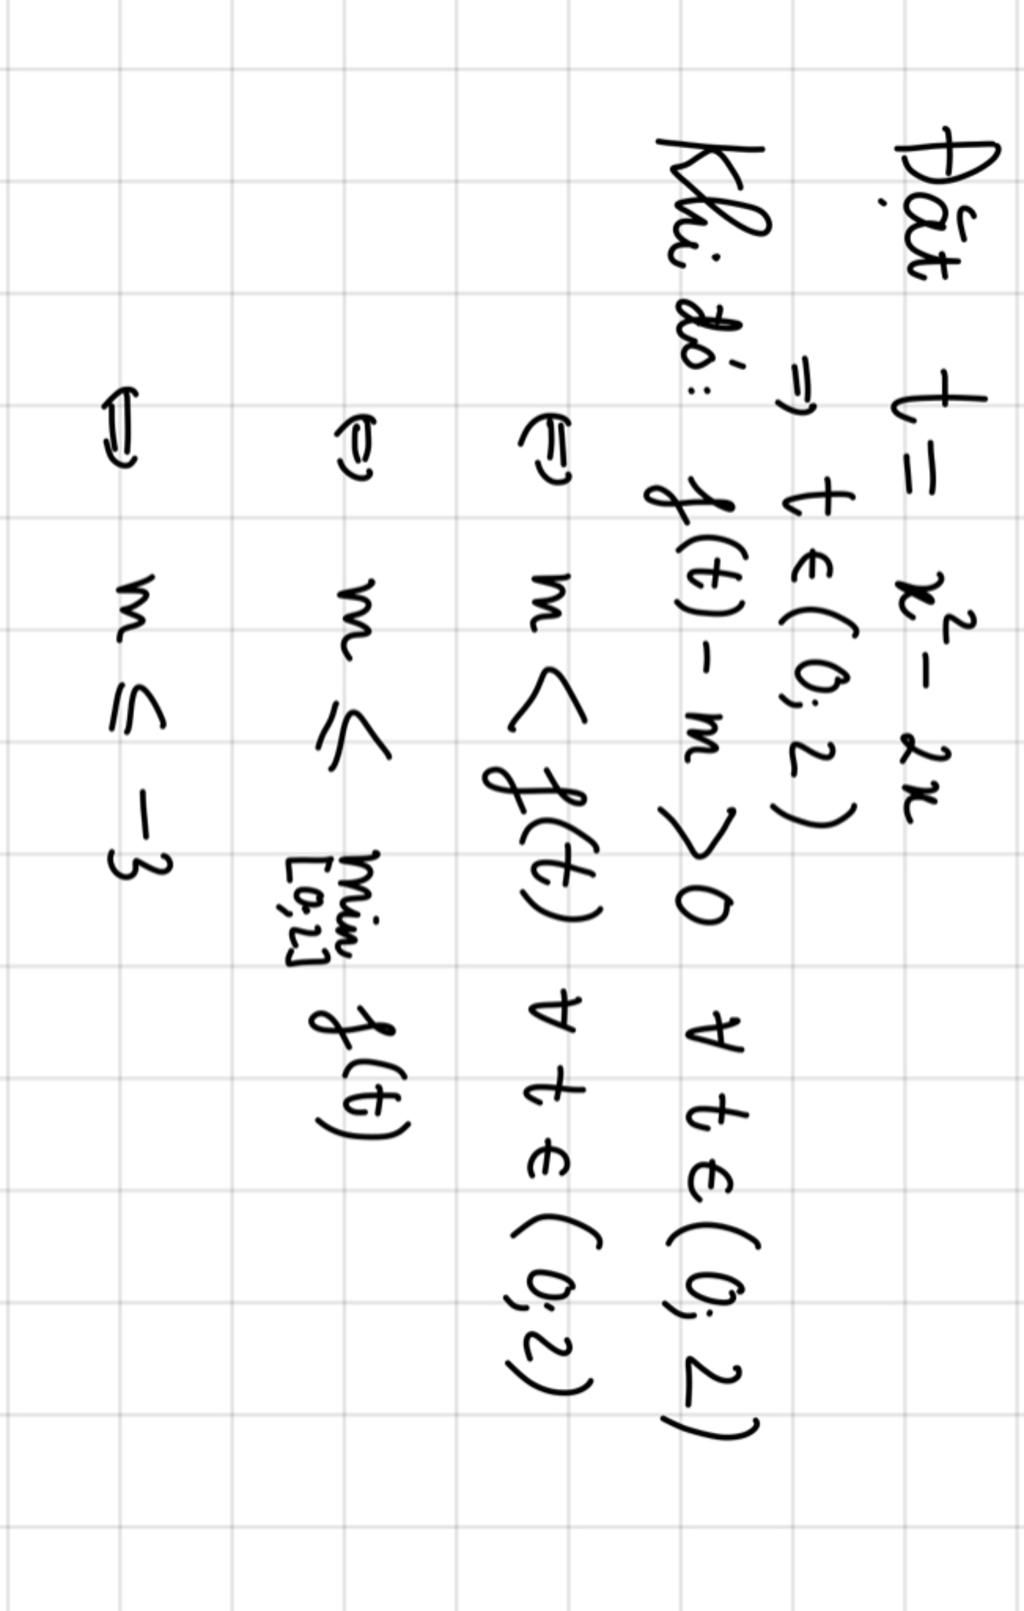 Đặt t = x² - 2x
⇒ t ∈ (0; 2)
Khi đó: f(t) - m > 0 ∀ t ∈ (0; 2)
⇔ m < f(t) ∀ t ∈ (0; 2)
⇔ m ≤ min f(t)
[0; 2]
⇔ m ≤ -3